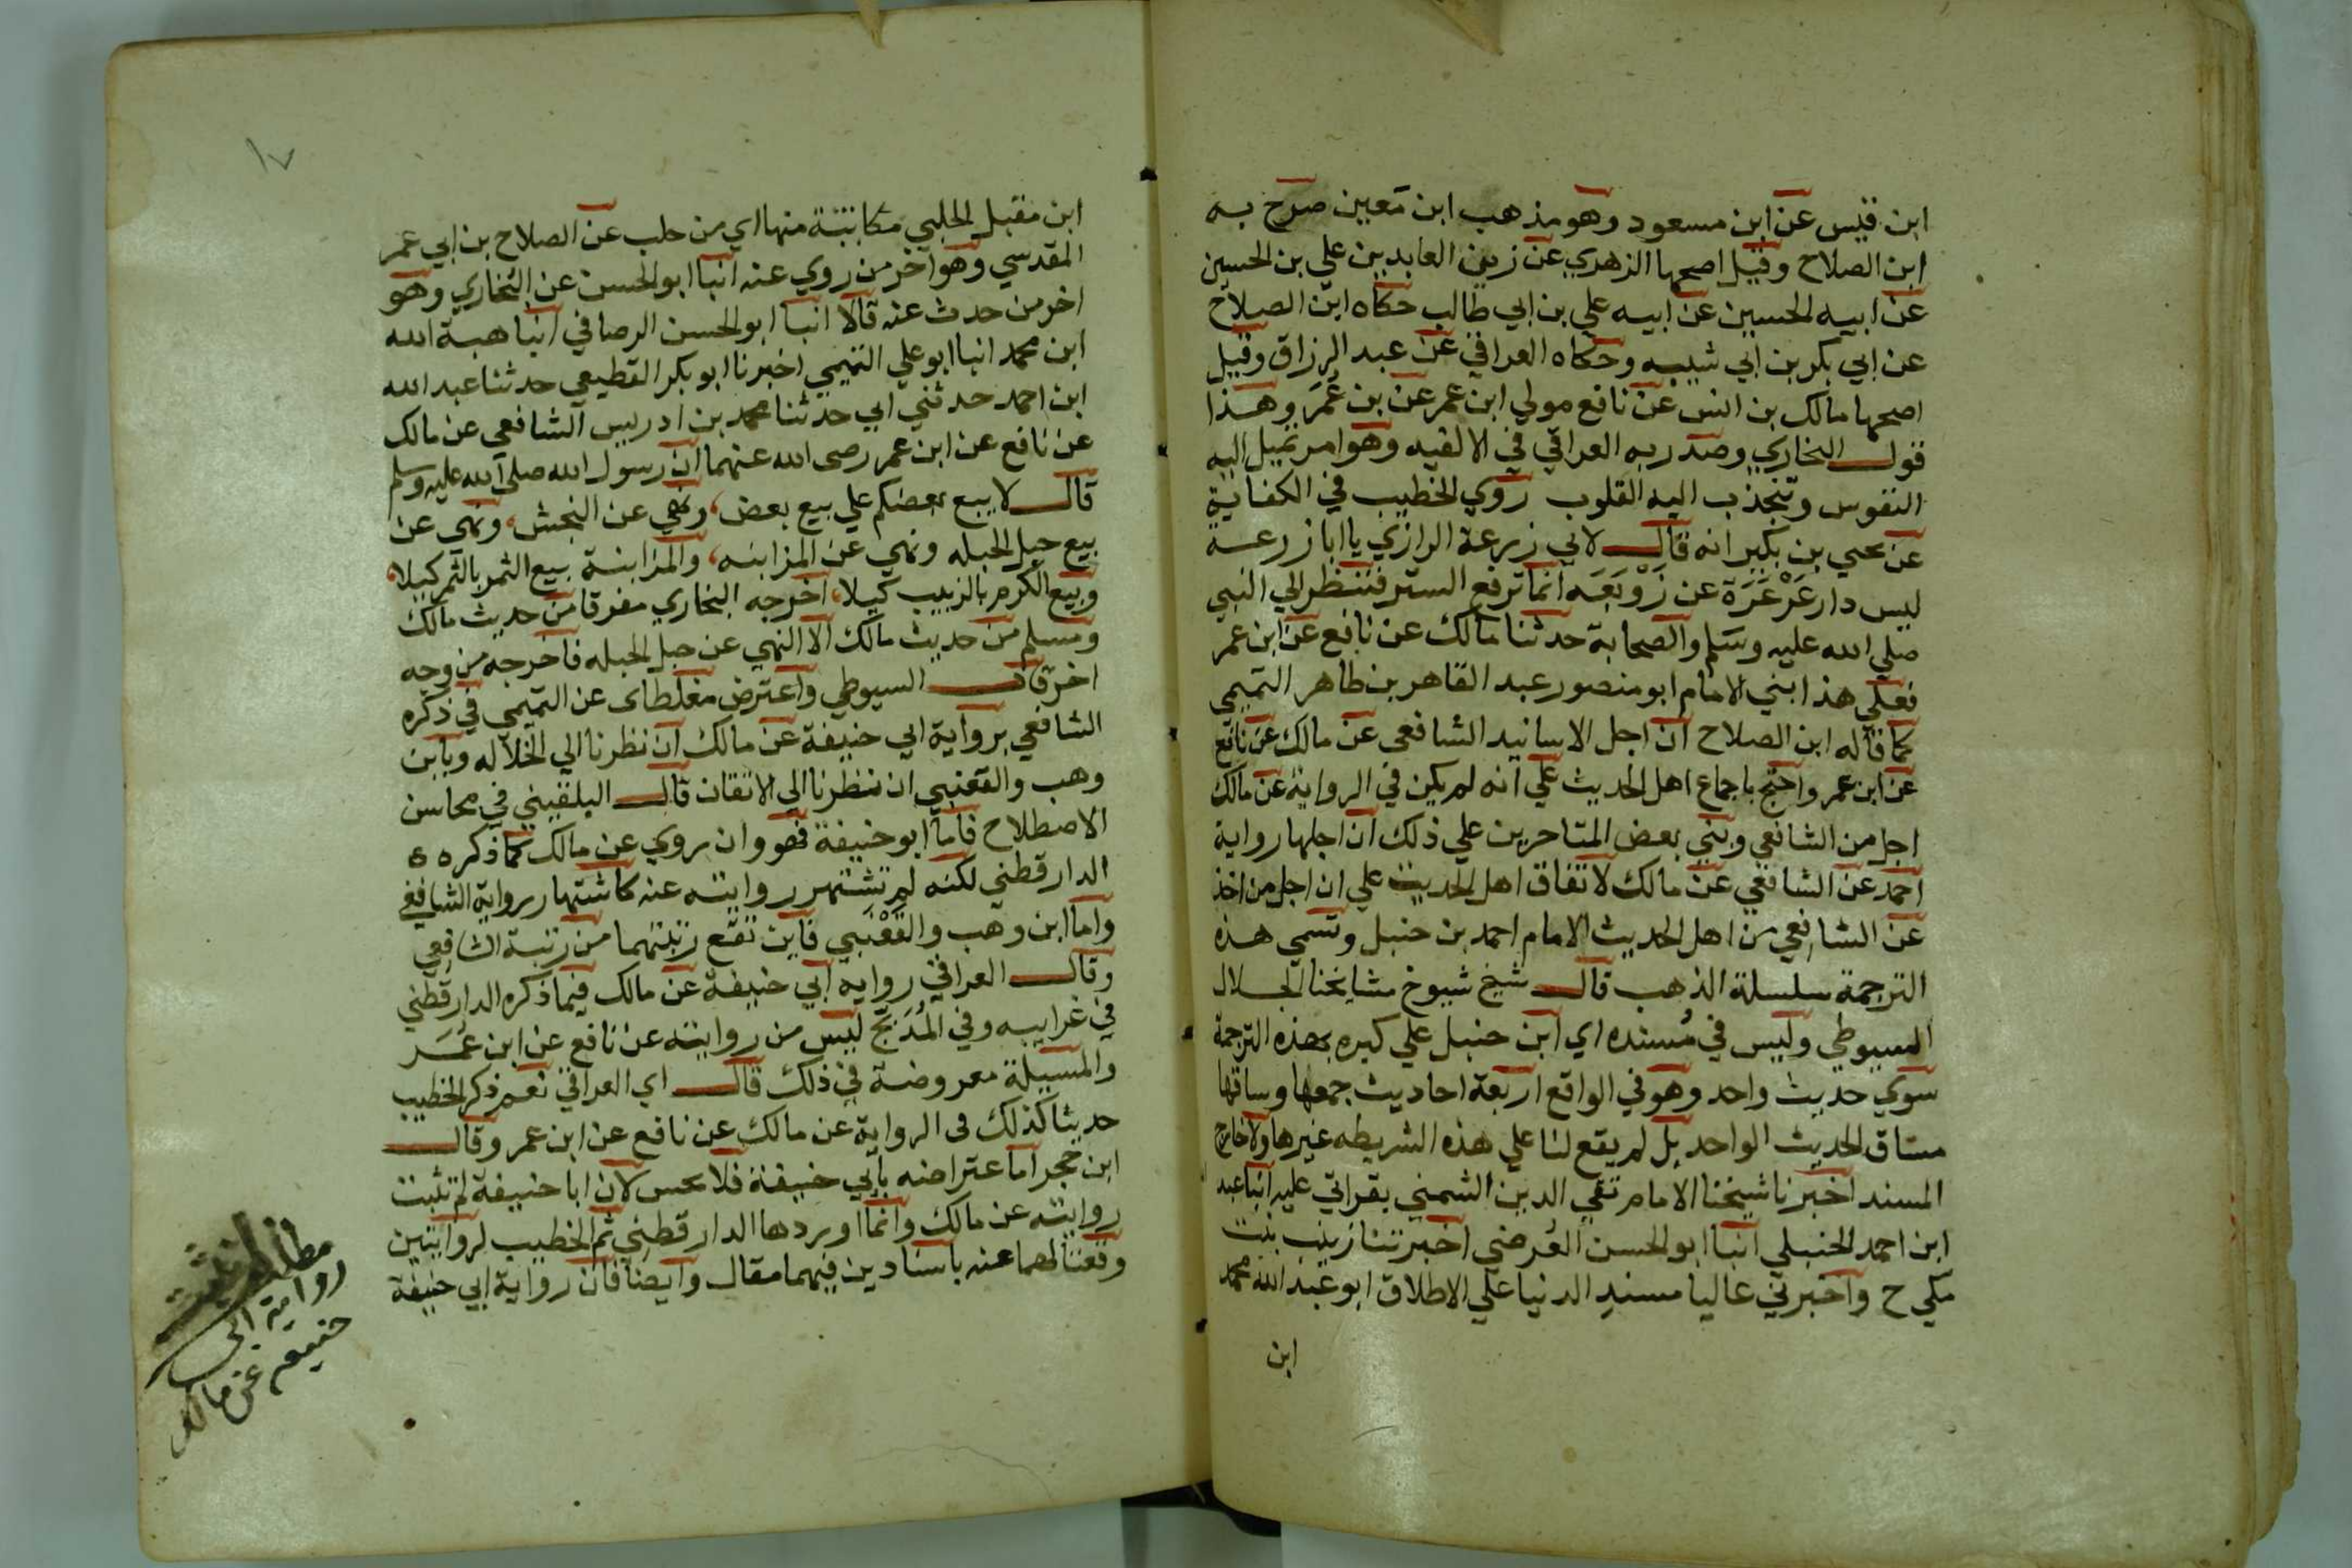 ابن قيس عن ابن مسعود وهو مذهب ابن مَعين صرح به
ابن الصلاح وقيل اصحها الزهري عن زين العابدين علي بن الحسين
عن ابيه الحسين عن ابيه علي بن ابي طالب حكاه ابن الصلاح
عن ابي بكر بن ابي شيبه وحكاه العراقي عن عبد الرزاق وقيل
اصحها مالك بن انس عن نافع مولي ابن عمر عن بن عُمَر وهذا
قول البخاري وصدر به العراقي في الالفيه وهو امر تميل اليه
النفوس وتنجذب اليه القلوب روي الخطيب في الكفاية
عن يحيي بن بكير انه قال لابي زرعة الرازي يا ابا زرعة
ليس دا زَعْزَعَة عن زَوْبَعَه انما ترفع الستر فتنظر الي النبي
صلي الله عليه وسَلم والصحابة حدثنا مالك عن نافع عن ابن عمر
فعلي هذا بني الامام ابو منصور عبد القاهر بن طاهر التميمي
كما قاله ابن الصلاح ان اجل الاسانيد الشافعي عن مالك عن نافع
عن ابن عمر واحتج باجماع اهل الحديث علي انه لم يكن في الرواية عن مالك
اجل من الشافعي وبني بعض المتاخرين علي ذلك ان اجلها رواية
احمد عن الشافعي عن مالك لاتفاق اهل الحديث علي ان اجل من اخذ
عن الشافعي من اهل الحديث الامام احمد بن حنبل وتسمي هذه
الترجمة سلسلة الذهب قال شيخ شيوخ مشايخنا الجلال
السيوطي وليس في مُسنده اي ابن حنبل علي كبره بهذه الترجمة
سوي حديث واحد وهو في الواقع اربعة احاديث جمعها وساقها
مساق الحديث الواحد بل لم يقع لنا علي هذه الشريطه غيرها ولا خارج
المسند اخبرنا شيخنا الامام تقي الدين الشمني بقراتي عليه انبا عبد
ابن احمد الحنبلي انبا ابو الحسن العُرضي اخبرتنا زينب بنت
مكي ح واخبرني عاليا مسند الدنيا علي الاطلاق ابو عبد الله محمد
ابن
١٧
ابن مقبل الحلبي مكاتبة منها اي من حلب عن الصلاح بن ابي عمر
المقدسي وهو اخر من روي عنه انبا ابو الحسن عن البخاري وهو
اخر من حدث عنه قالا انبا ابو الحسن الرصافي انبا هبة الله
ابن محمد انبا ابو علي التميمي اخبرنا ابو بكر القطيعي حدثنا عبد الله
ابن احمد حدثني ابي حدثنا محمد بن ادريس الشافعي عن مالك
عن نافع عن ابن عمر رضى الله عنهما ان رسول الله صلى الله عليه وسلم
قال لا يبع بعضكم علي بيع بعض، ونهي عن النجش، ونهي عن
بيع حبل الحبله ونهي عن المزابنه، والمزابنة بيع الثمر بالثمر كيلا،
وبيع الكرم بالزبيب كيلا، اخرجه البخاري مفرقا من حديث مالك
ومسلم من حديث مالك الا النهي عن حبل الحبله فاخرجه من وجه
اخر قال السيوطي واعترض مغلطاى عن التميمي في ذكره
الشافعي برواية ابي حنيفة عن مالك ان نظرنا الي الجلاله وبابن
وهب والقعنبي ان نظرنا الي الاتقان قال البلقيني في محاسن
الاصطلاح فاما ابو حنيفة فهو وان روي عن مالك كما ذكره
الدارقطني لكنه لم تشتهر روايته عنه كاشتهار رواية الشافعي
واما ابن وهب والقَعْنَبي فاين تقع رتبتهما من رتبة الشافعي
وقال العراقي رواية ابي حنيفة عن مالك فيما ذكره الدارقطني
في غرايبه وفي المُدَبَّج ليس من روايته عن نافع عن ابن عُمَر
والمسيلة معروضة في ذلك قال اي العراقي نعم ذكر الخطيب
حديثا كذلك فى الرواية عن مالك عن نافع عن ابن عمر وقال
ابن حجر اما اعتراضه بابي حنيفة فلا يحسن لان ابا حنيفة لم تثبت
روايته عن مالك وانما اوردها الدارقطني ثم الخطيب لروايتين
وقعتا لهما عنه باسنادين فيهما مقال وايضا فان رواية ابي حنيفة
مطلب
رواية ابي
حنيفه عن مالك